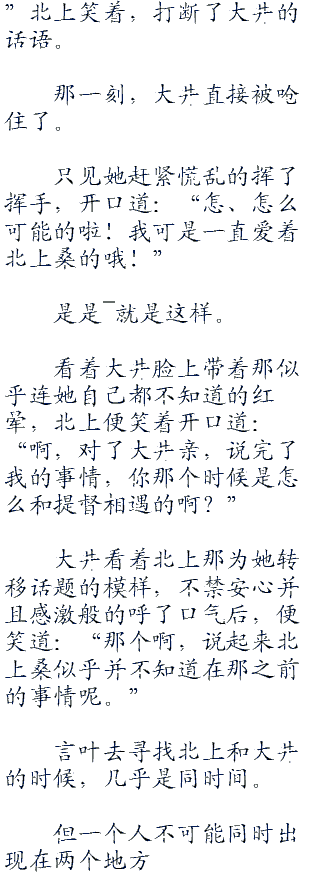 ”北上笑着，打断了大井的
话语。
那一刻，大井直接被呛
住了。
只见她赶紧慌乱的挥了
挥手，开口道：“怎、怎么
可能的啦！我可是一直爱着
北上桑的哦！”
是是~就是这样。
看着大井脸上带着那似
乎连她自己都不知道的红
晕，北上便笑着开口道：
“啊，对了大井亲，说完了
我的事情，你那个时候是怎
么和提督相遇的啊？”
大井看着北上那为她转
移话题的模样，不禁安心并
且感激般的呼了口气后，便
笑道：“那个啊，说起来北
上桑似乎并不知道在那之前
的事情呢。”
言叶去寻找北上和大井
的时候，几乎是同时间。
但一个人不可能同时出
现在两个地方